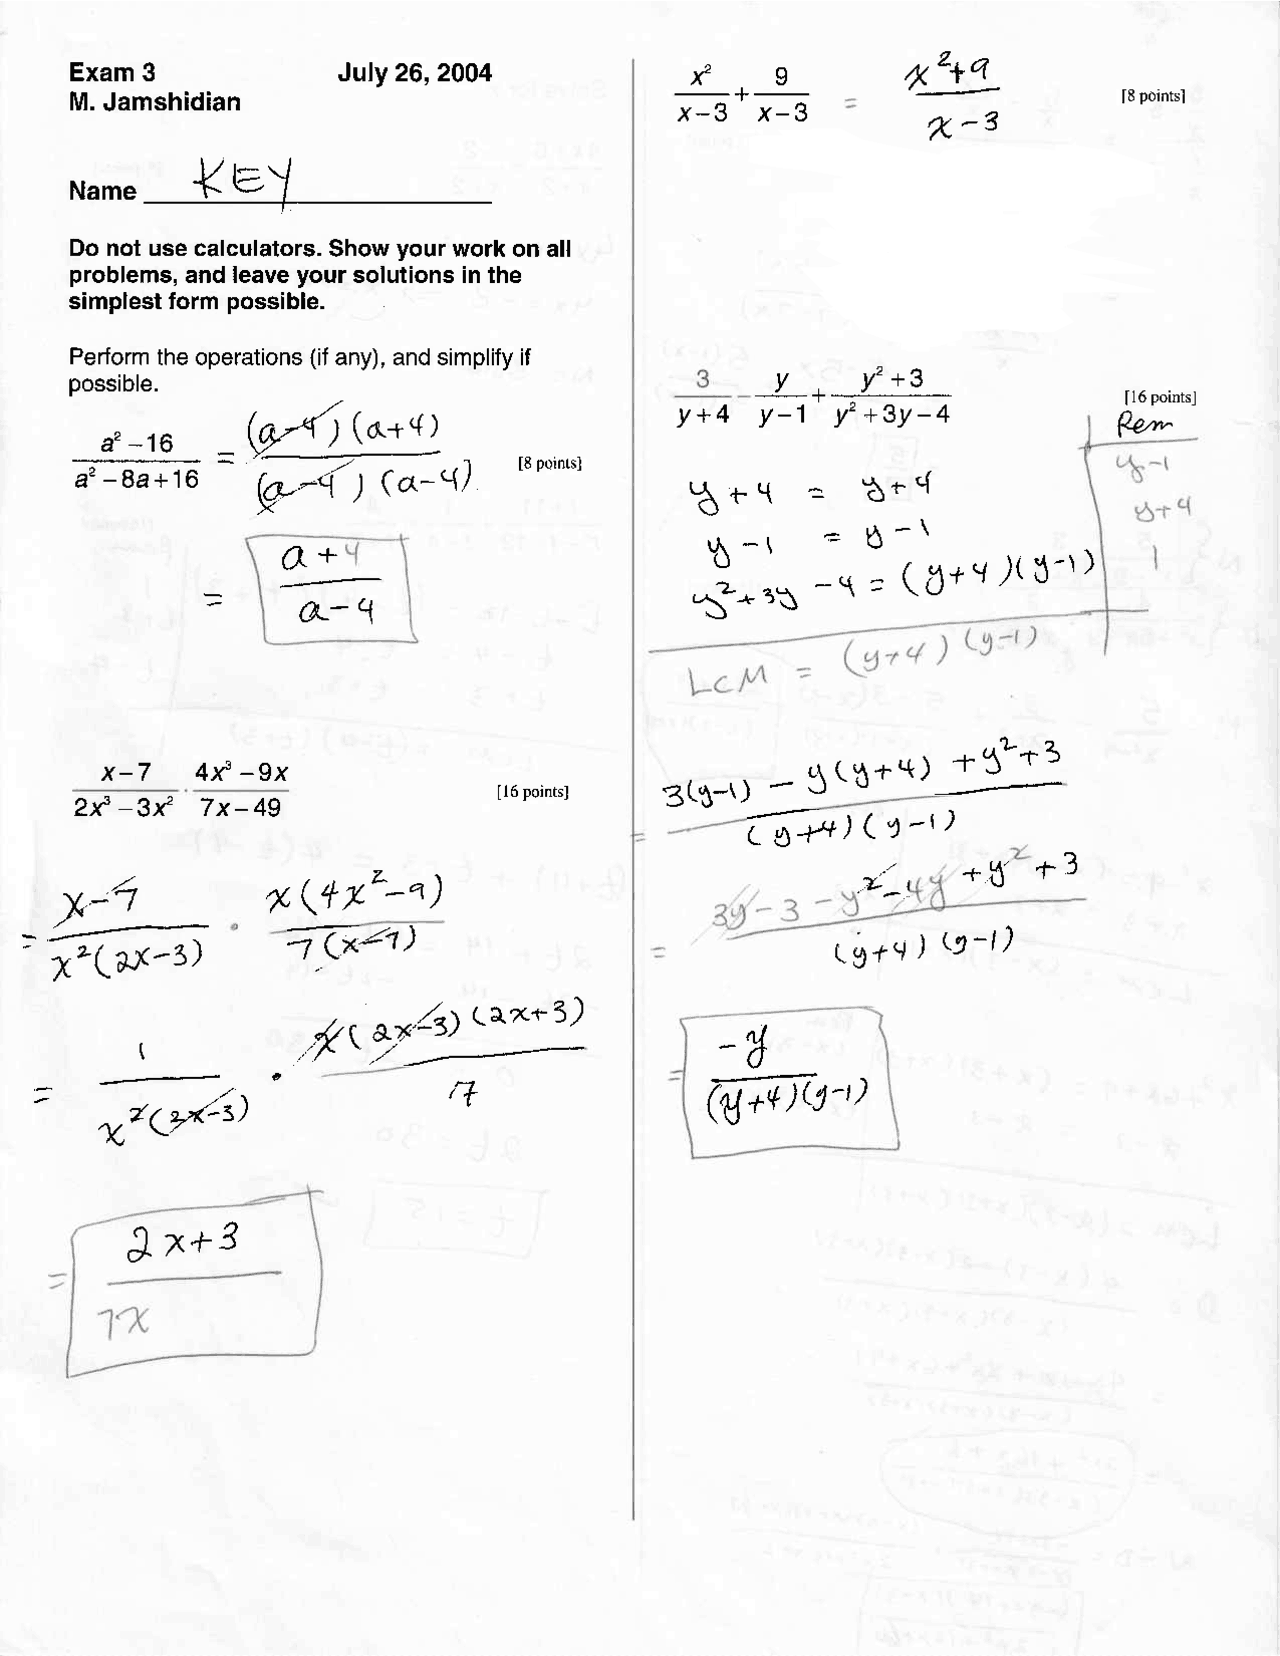 Exam 3 July 26, 2004
M. Jamshidian
Name KEY
Do not use calculators. Show your work on all
problems, and leave your solutions in the
simplest form possible.
Perform the operations (if any), and simplify if
possible.
(a² − 16)/(a² − 8a + 16) = (a−4)(a+4)/(a−4)(a−4) [8 points]
= (a+4)/(a−4)
(x − 7)/(2x³ − 3x²) · (4x³ − 9x)/(7x − 49) [16 points]
= (x−7)/x²(2x−3) · x(4x²−9)/7(x−7)
= 1/x²(2x−3) · x(2x−3)(2x+3)/7
= (2x+3)/7x
x²/(x−3) + 9/(x−3) = (x²+9)/(x−3) [8 points]
3/(y+4) − y/(y−1) + (y²+3)/(y²+3y−4) [16 points]
Rem
y+4 = y+4 y−1
y−1 = y−1 y+4
y²+3y−4 = (y+4)(y−1) 1
LCM = (y+4)(y−1)
= (3(y−1) − y(y+4) + y²+3)/(y+4)(y−1)
= (3y−3−y²−4y+y²+3)/(y+4)(y−1)
= −y/(y+4)(y−1)